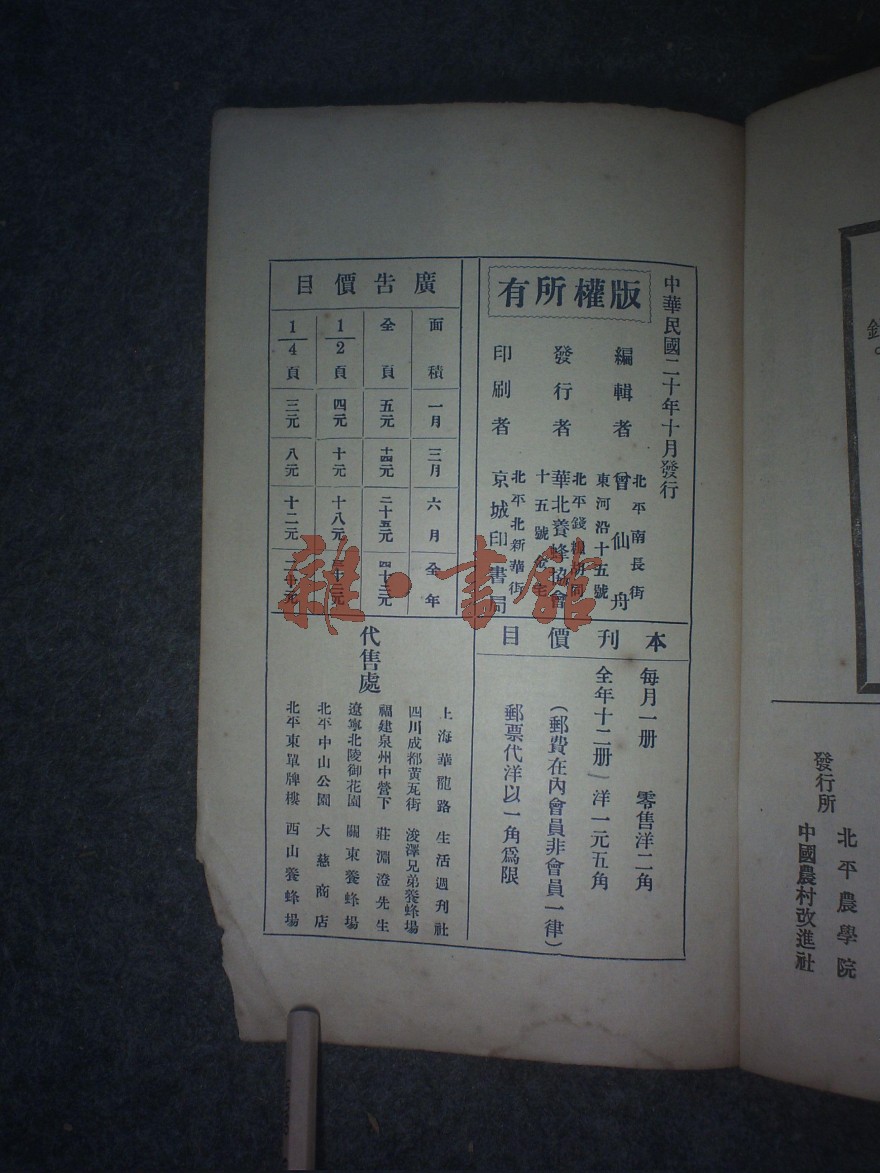 中華民國二十年十月發行
版權所有
編輯者 曾仙舟
北平南長街
東河沿十五號
發行者 華北養蜂協會
北平錢糧胡同
十五號
印刷者 京城印書局
北平北新華街
本刊價目
每月一册 零售洋二角
全年十二册 洋一元五角
(郵費在內會員非會員一律)
郵票代洋以一角爲限
廣告價目
面積 一月 三月 六月 全年
全頁 五元 十四元 二十五元 四十三元
1/2頁 四元 十元 十八元 三十三元
1/4頁 三元 八元 十二元 二十元
代售處
上海華龍路 生活週刊社
四川成都黃瓦街 浚澤兄弟養蜂場
福建泉州中營下 莊淵澄先生
遼寧北陵御花園 關東養蜂場
北平中山公園 大慈商店
北平東單牌樓 西山養蜂場
雜·書館
發行所
北平農學院
中國農村改進社